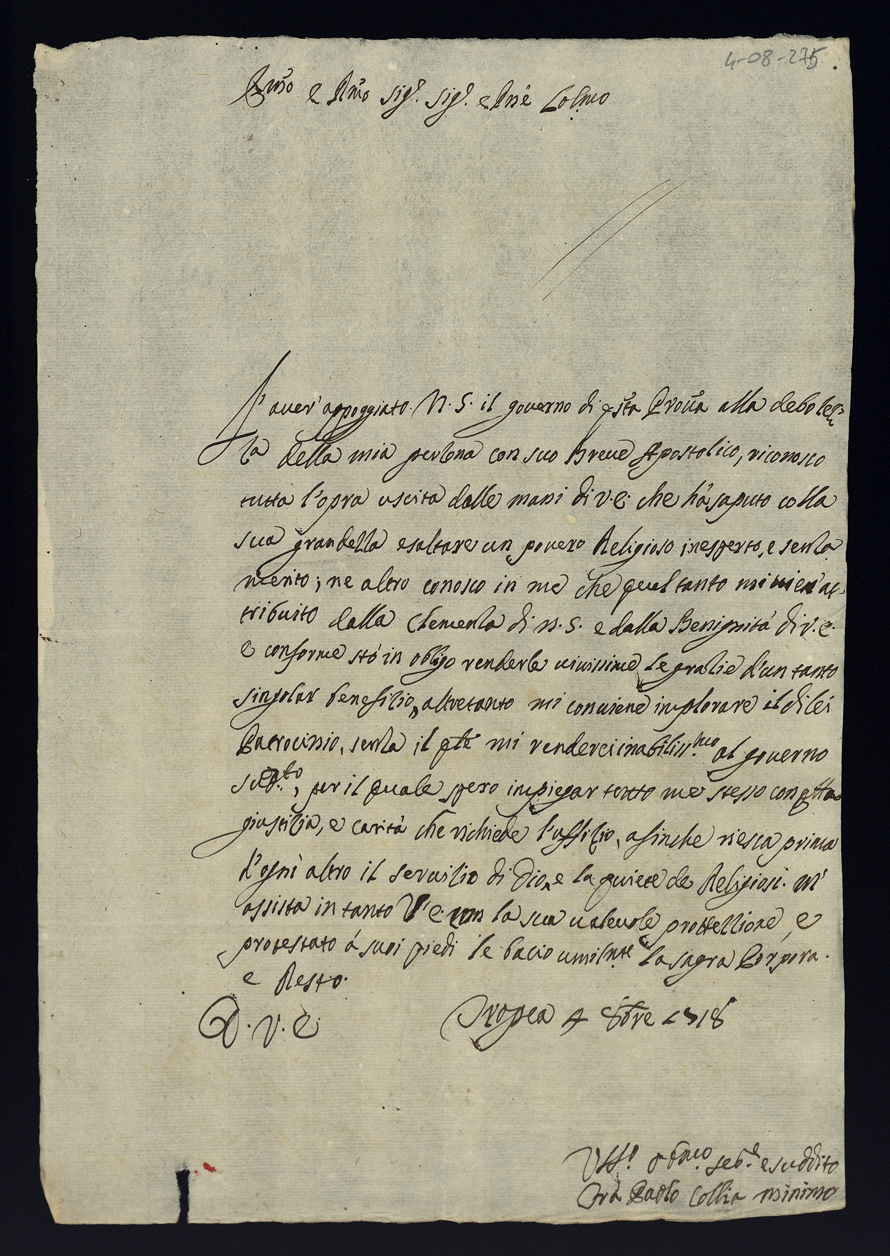 4-08-275
Em̃o e Rm̃o Sig.r Sig.r e Pñe Col.mo
L'aver' appoggiato N. S. il governo di q̃sta Provĩa alla debolez=
za della mia persona con suo Breve Apostolico, riconosco
tutta l'opra uscita dalle mani di V. E. che hà saputo colla
sua grandezza esaltare un povero Religioso inesperto, e senza
merito; ne altro conosco in me che quel tanto mi vien' at=
tribuito dalla Clemenza di N. S. e dalla Benignità di V. E.
e conforme stò in obligo renderle vivissime le grazie d'un tanto
singolar benefizio, altretanto mi conviene implorare il di lei
Patrocinio, senza il q̃le mi renderei inabiliss.mo al governo
sud.tto, per il quale spero impiegar tutto me stesso con q̃lla
giustizia, e carità che richiede l'uffizio, afinche riesca prima
d'ogni altro il servizio di Dio, e la quiete de Religiosi. M'
assista in tanto V. E. con la sua valevole protezzione, e
prostrato à suoi piedi le bacio umilm.te la sagra Porpora.
e Resto.
D. V. E. Tropea 4 8bre 1718
Um̃o obm̃o ser.e e suddito
Frà Paolo Collia minimo